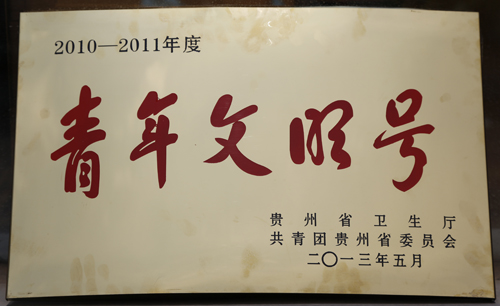 2010—2011年度
青年文明号
贵州省卫生厅
共青团贵州省委员会
二〇一三年五月